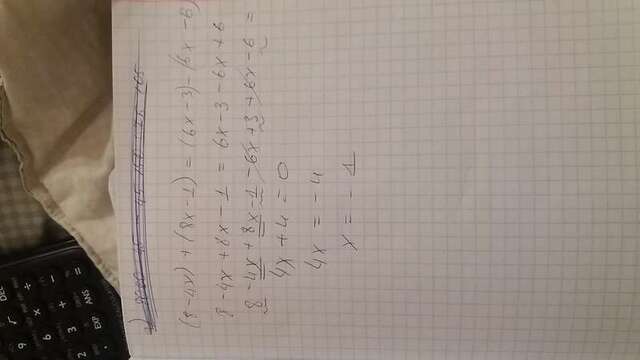 (8-4x)+(8x-1)=(6x-3)-(6x-6)
8-4x+8x-1=6x-3-6x+6
8-4x+8x-1-6x+3+6x-6=
4x+4=0
4x=-4
x=-1
DEL
9 √ ÷
6 x -
3 + =
2
. EXP ANS